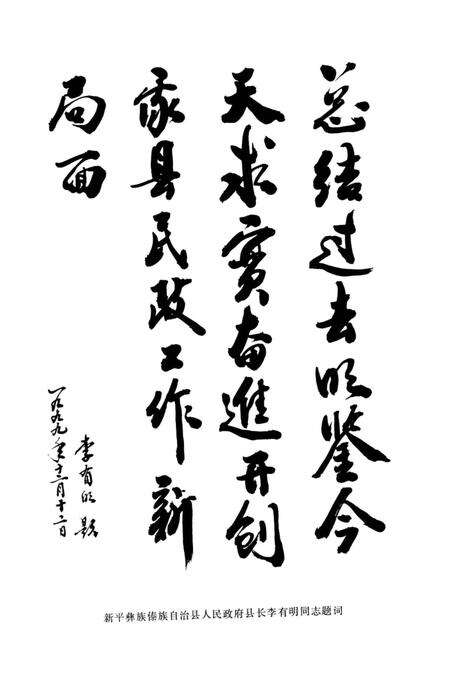 总结过去明鉴今
天求實奋進开创
我县民政工作新
局面
李有明 题
一九九九年十二月十二日
新平彝族傣族自治县人民政府县长李有明同志题词